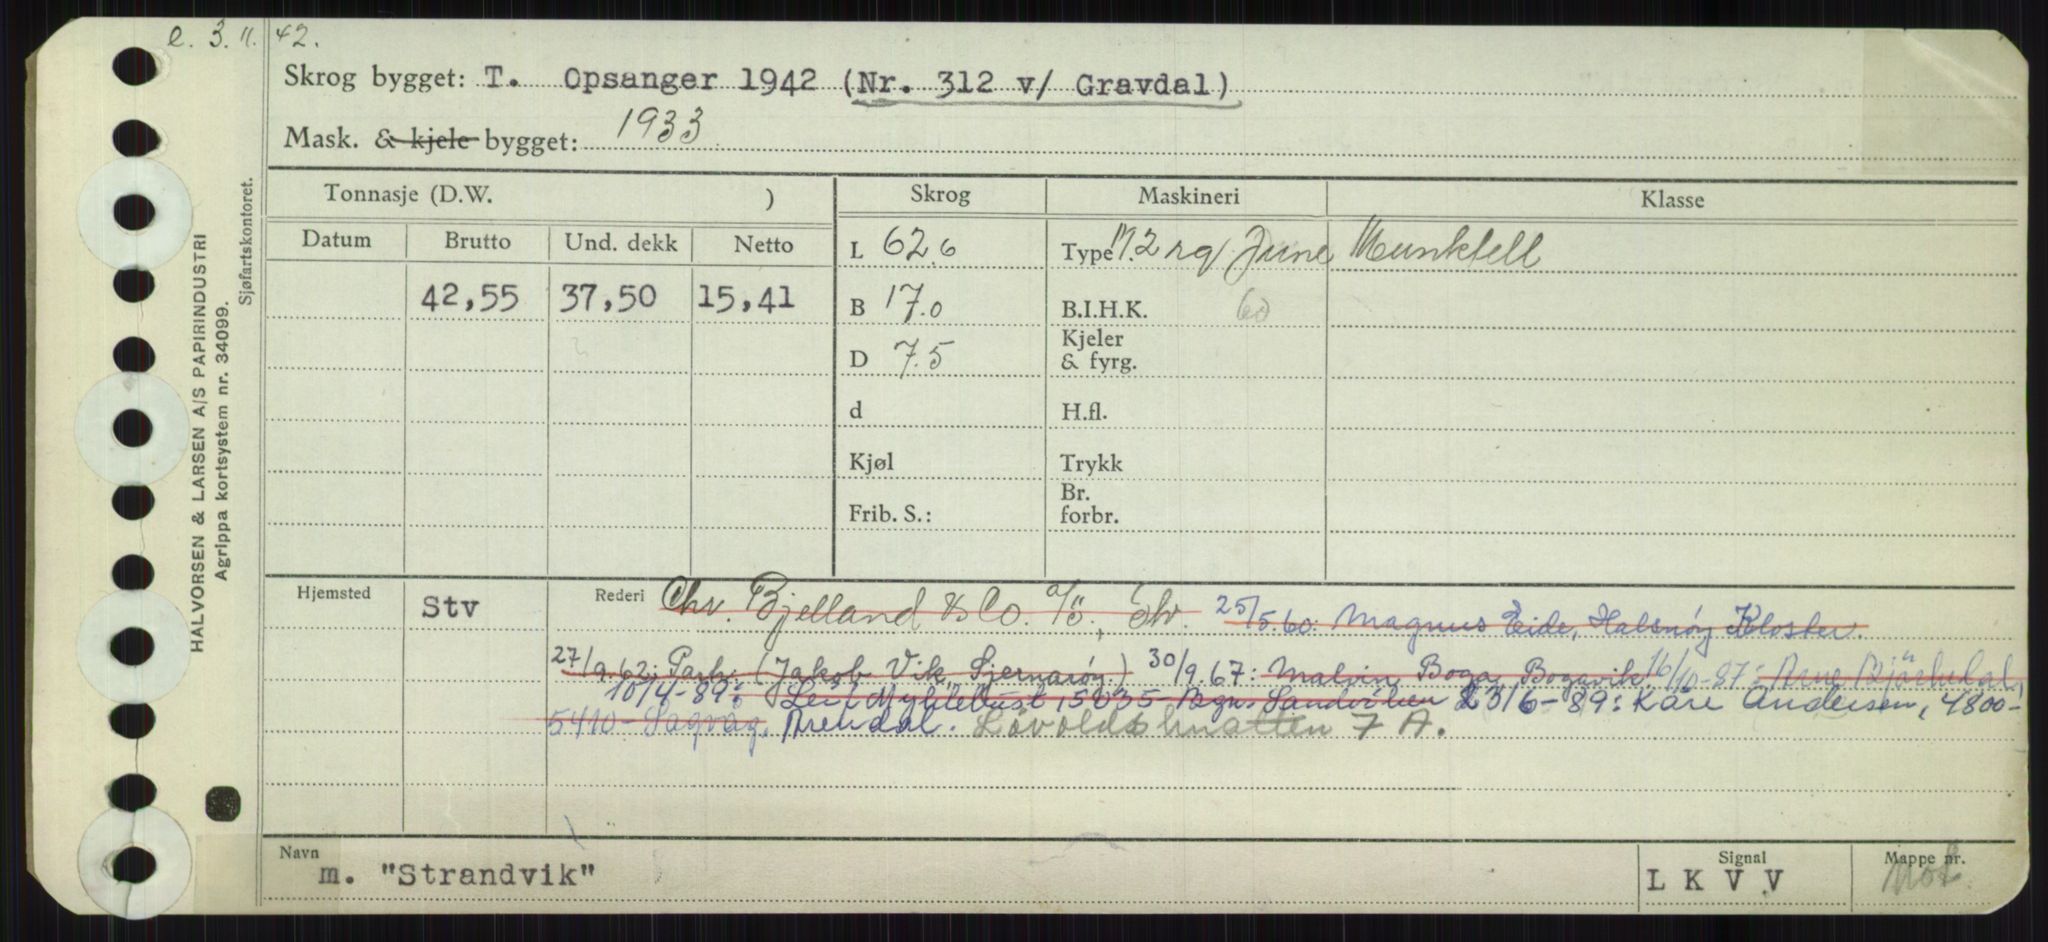 e. 3. 11. 42.
Skrog bygget: T. Opsanger 1942 (Nr. 312 v/ Gravdal)
Mask. & kjele bygget: 1933
Tonnasje (D.W. ) Skrog Maskineri Klasse
Datum Brutto Und. dekk Netto
L 62.6 Type 2 June Munktell
42,55 37,50 15,41
B 17.0 B.I.H.K. 60
D 7.5 Kjeler & fyrg.
d H.fl.
Kjøl Trykk
Frib. S.: Br. forbr.
Hjemsted Stv Rederi Chr. Bjelland & Co. A/S., Stv. 25/5.60: Magnus Eide, Halsnøy Kloster.
27/9.62: Partr. (Jakob Vik, Sjernarøy.) 30/9.67: Malvin Boga, Bogavik 16/10-87: Arne Bjørkedal,
10/4-89: Leif Myklebust, 5035- Sandviken 23/6-89: Kåre Andersen, 4800-
5410-Sagvåg. Arendal. Løvoldshnatten 7 A.
Navn m. "Strandvik" Signal L K V V Mappe nr. Mot
HALVORSEN & LARSEN A/S PAPIRINDUSTRI
Agrippa kortsystem nr. 34099.
Sjøfartskontoret.